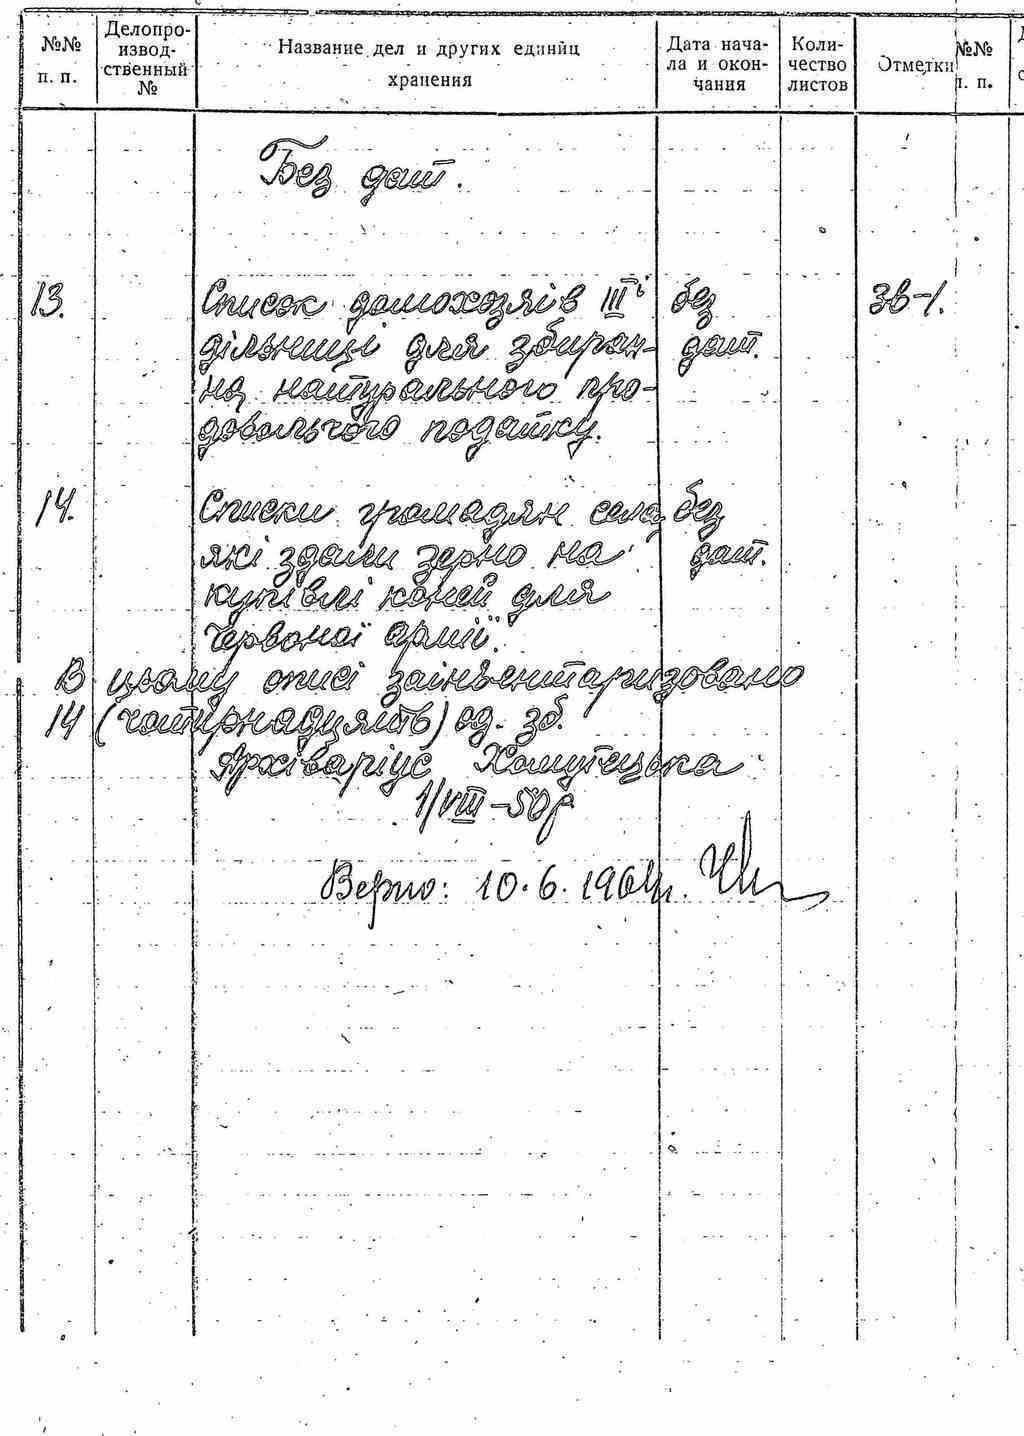 №№ п. п.
Делопро-
извод-
ственный
№
Название дел и других единиц
хранения
Дата нача-
ла и окон-
чания
Коли-
чество
листов
Отметки
№№
п. п.
Без дат.
13. Список домохозяїв III ї без Зв-1.
дільниці для збиран- дат.
на натурального про-
довольчого податку.
14. Списки громадян села, без
які здали зерно на дат.
купівлі коней для
Червоної Армії.
В цьому описі заінвентаризовано
14 (чотирнадцять) од. зб.
Архіваріус Хомутецька
1/VIII-50р
Верно: 10.6.1964г.